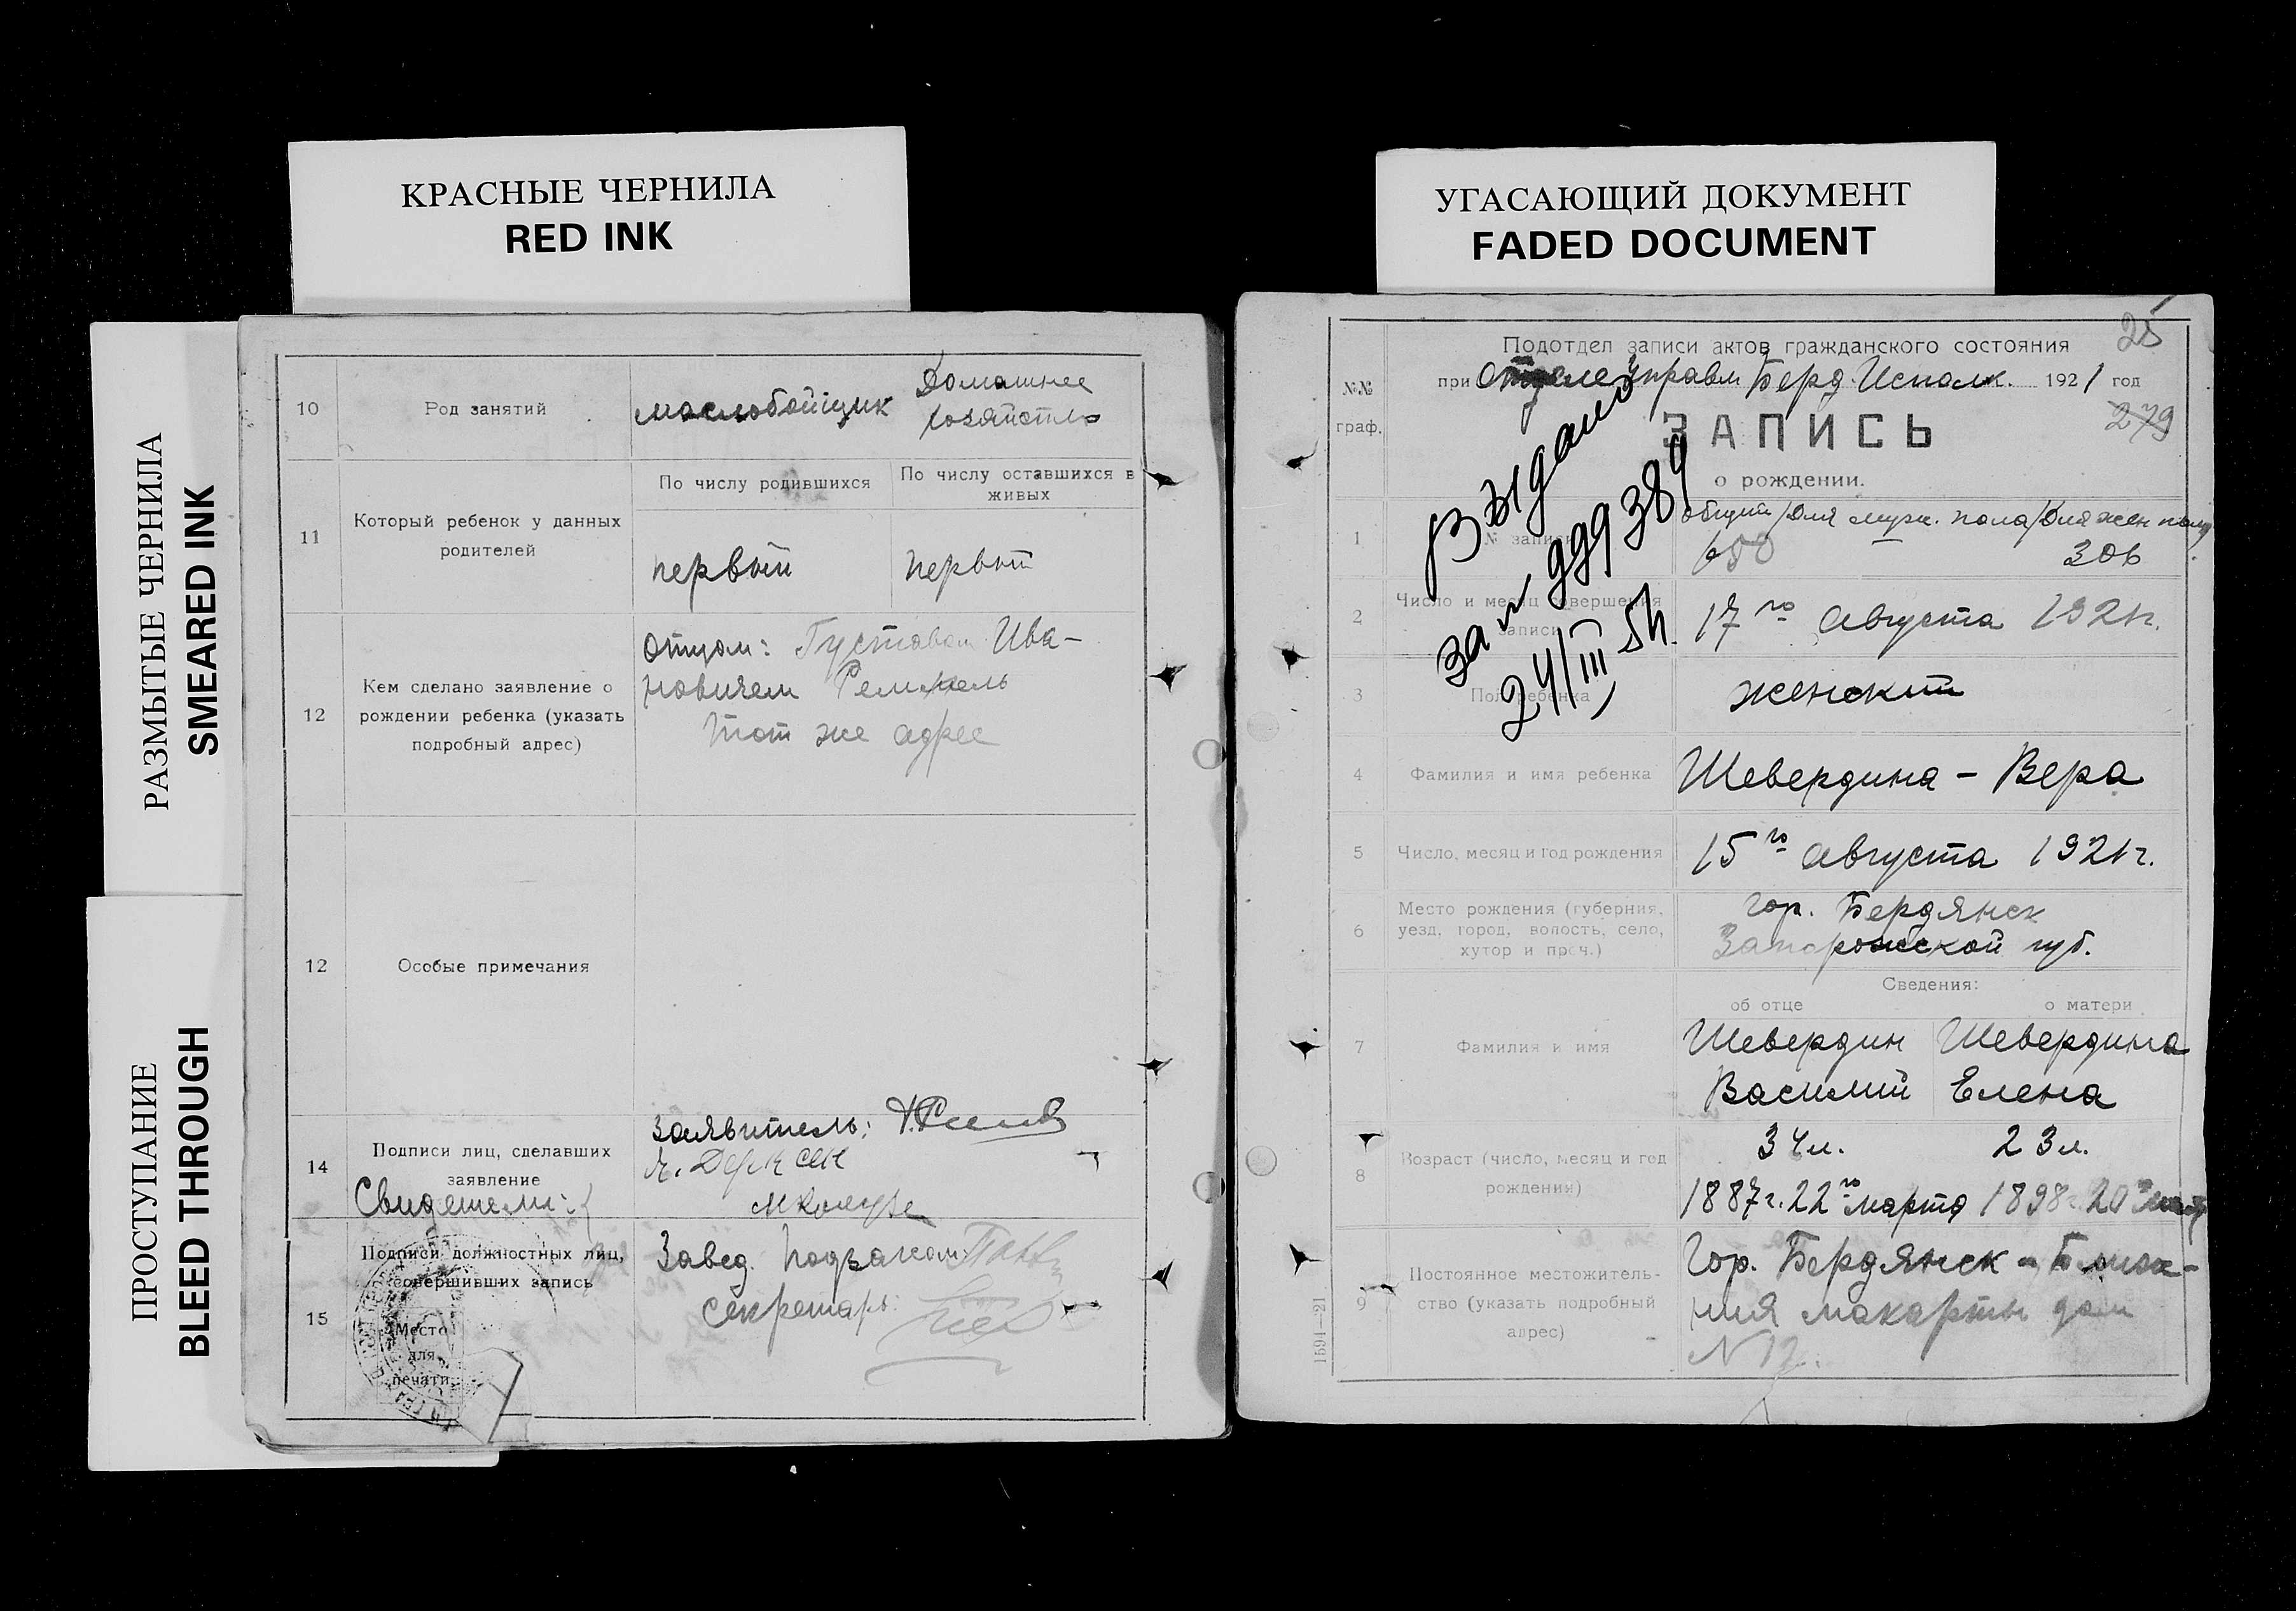 КРАСНЫЕ ЧЕРНИЛА
RED INK
РАЗМЫТЫЕ ЧЕРНИЛА
SMEARED INK
ПРОСТУПАНИЕ
BLEED THROUGH
10
Род занятий
маслобойщик
Домашнее
хозяйство
11
Который ребенок у данных
родителей
По числу родившихся
По числу оставшихся в
живых
первый
первый
12
Кем сделано заявление о
рождении ребенка (указать
подробный адрес)
Отцом: Густавом Ива-
новичем
тот же адрес
12
Особые примечания
14
Подписи лиц, сделавших
заявление
Свидетели:
Заявитель:
15
Подписи должностных лиц,
совершивших запись
Место
для
печати
Завед.
Секретарь:
УГАСАЮЩИЙ ДОКУМЕНТ
FADED DOCUMENT
25
№№
граф.
Подотдел записи актов гражданского состояния
при Отделе управл Берд. Исполк. 1921 год
279
ЗАПИСЬ
о рождении.
Выдано
за №
24/III 54.
1
№ записи
общий / для мужс. пола / для жен пола
650 — 306
2
Число и месяц совершения
записи
17го августа 1921г.
3
Пол ребенка
женский
4
Фамилия и имя ребенка
Шевердина - Вера
5
Число, месяц и год рождения
15го августа 1921г.
6
Место рождения (губерния,
уезд, город, волость, село,
хутор и проч.)
гор. Бердянск
Запорожской губ.
Сведения:
об отце
о матери
7
Фамилия и имя
Шевердин
Василий
Шевердина
Елена
8
Возраст (число, месяц и год
рождения)
34л.
1887г. 22го марта
23л.
1898г. 20го
9
Постоянное местожитель-
ство (указать подробный
адрес)
Гор. Бердянск - Ближ-
ния макорты дом
N 12.
1591—21